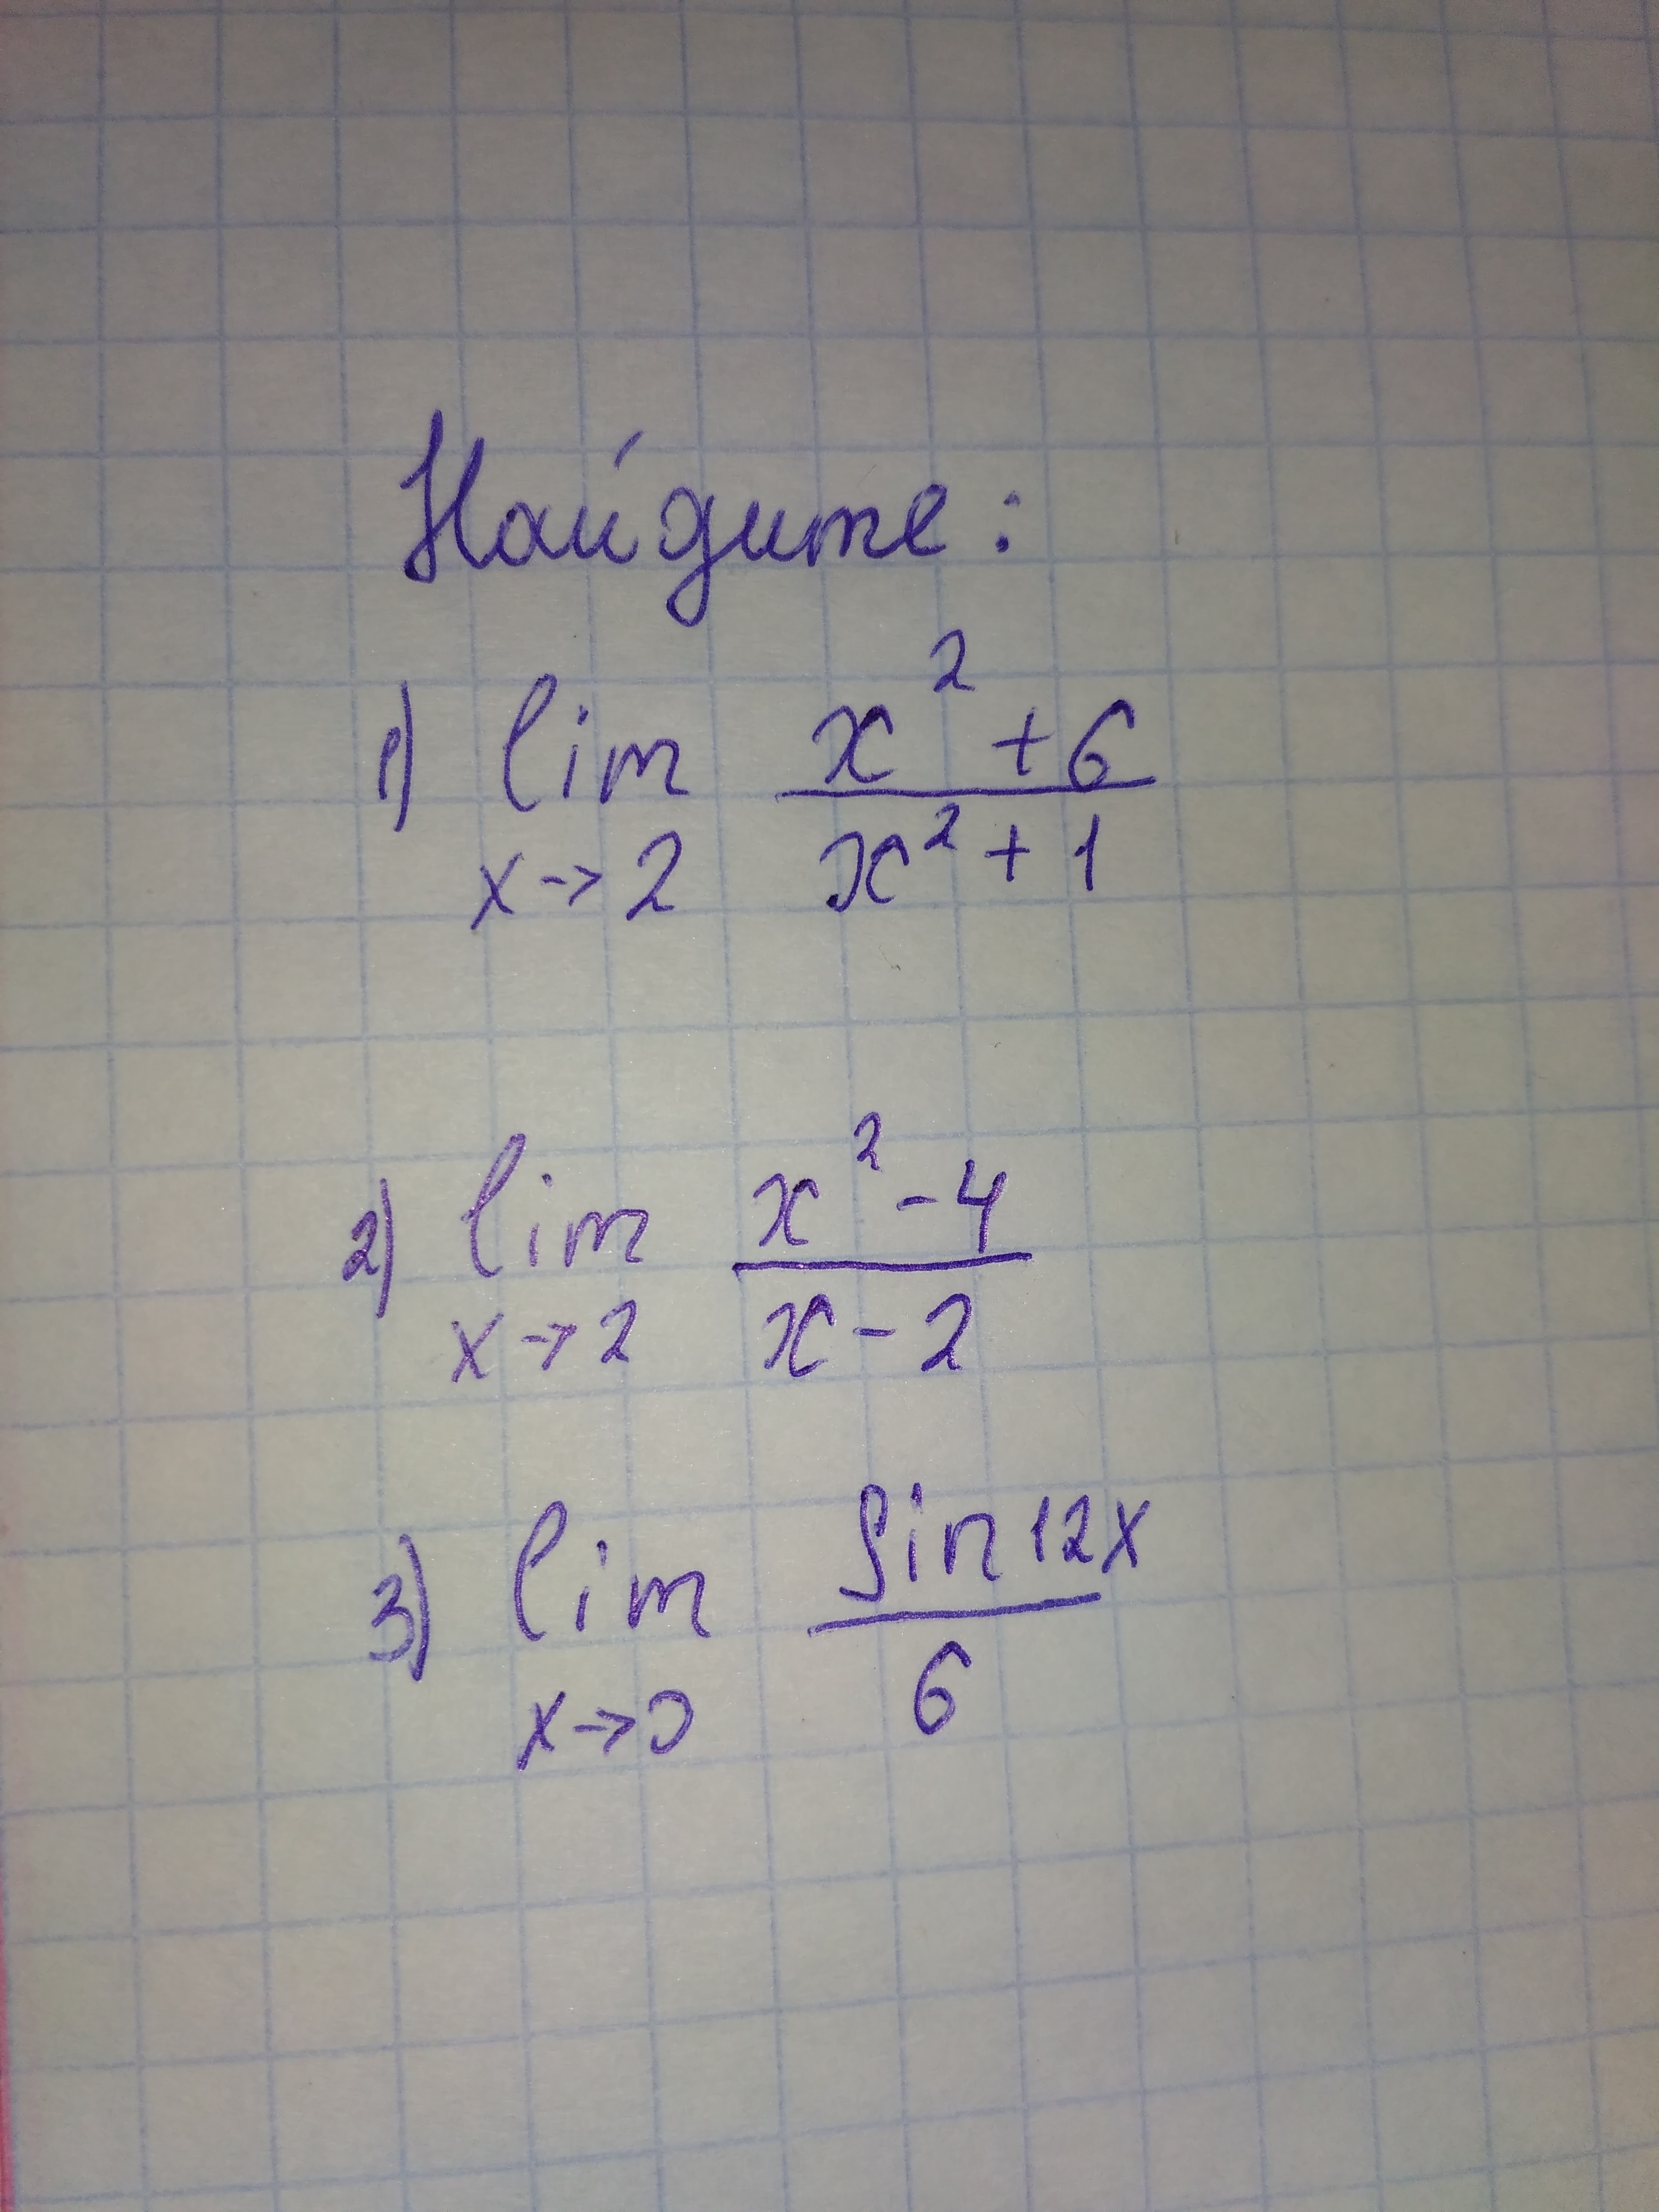 Найдите:
1) lim x→2 (x² + 6)/(x² + 1)
2) lim x→2 (x² - 4)/(x - 2)
3) lim x→0 (sin 12x)/6